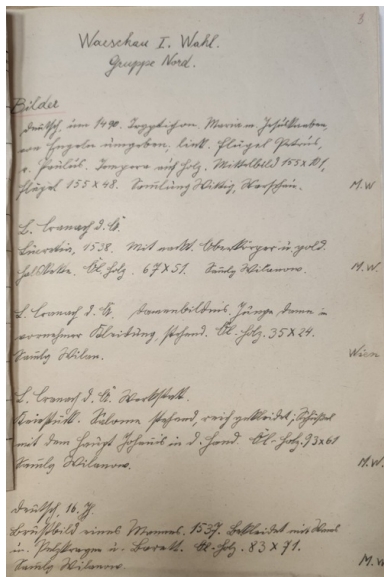 3
Warschau I. Wahl.
Gruppe Nord.
Bilder
Deutsch. um 1490. Tryptichon. Maria m. Jesusknaben,
von Engeln umgeben, link. Flügel Petrus,
r. Paulus. Tempera auf Holz. Mittelbild 155 x 101,
Flügel 155 x 48. Sammlung Wittig, Warschau.
M.W
L. Cranach d. Ä.
Lucretia, 1538. Mit nackt. Oberkörper u. gold.
Halskette. Öl, Holz. 67 x 51. Samlg Wilanow.
M.W
L. Cranach d. Ä. Damenbildnis. Junge Dame in
vornehmer Kleidung, stehend. Öl-Holz. 35 x 24.
Samlg Wilan.
Wien
L. Cranach d. Ä. Werkstatt.
Kniestück. Salome stehend, reich gekleidet, Schüssel
mit dem Haupt Johannis in d. Hand. Öl-Holz. 93 x 61
Samlg Wilanow.
M.W.
Deutsch, 16. J.
Brustbild eines Mannes. 1537. Bekleidet mit
m. Pelzkragen u. Barett. Öl-Holz. 83 x 71.
Samlg Wilanow
M.W